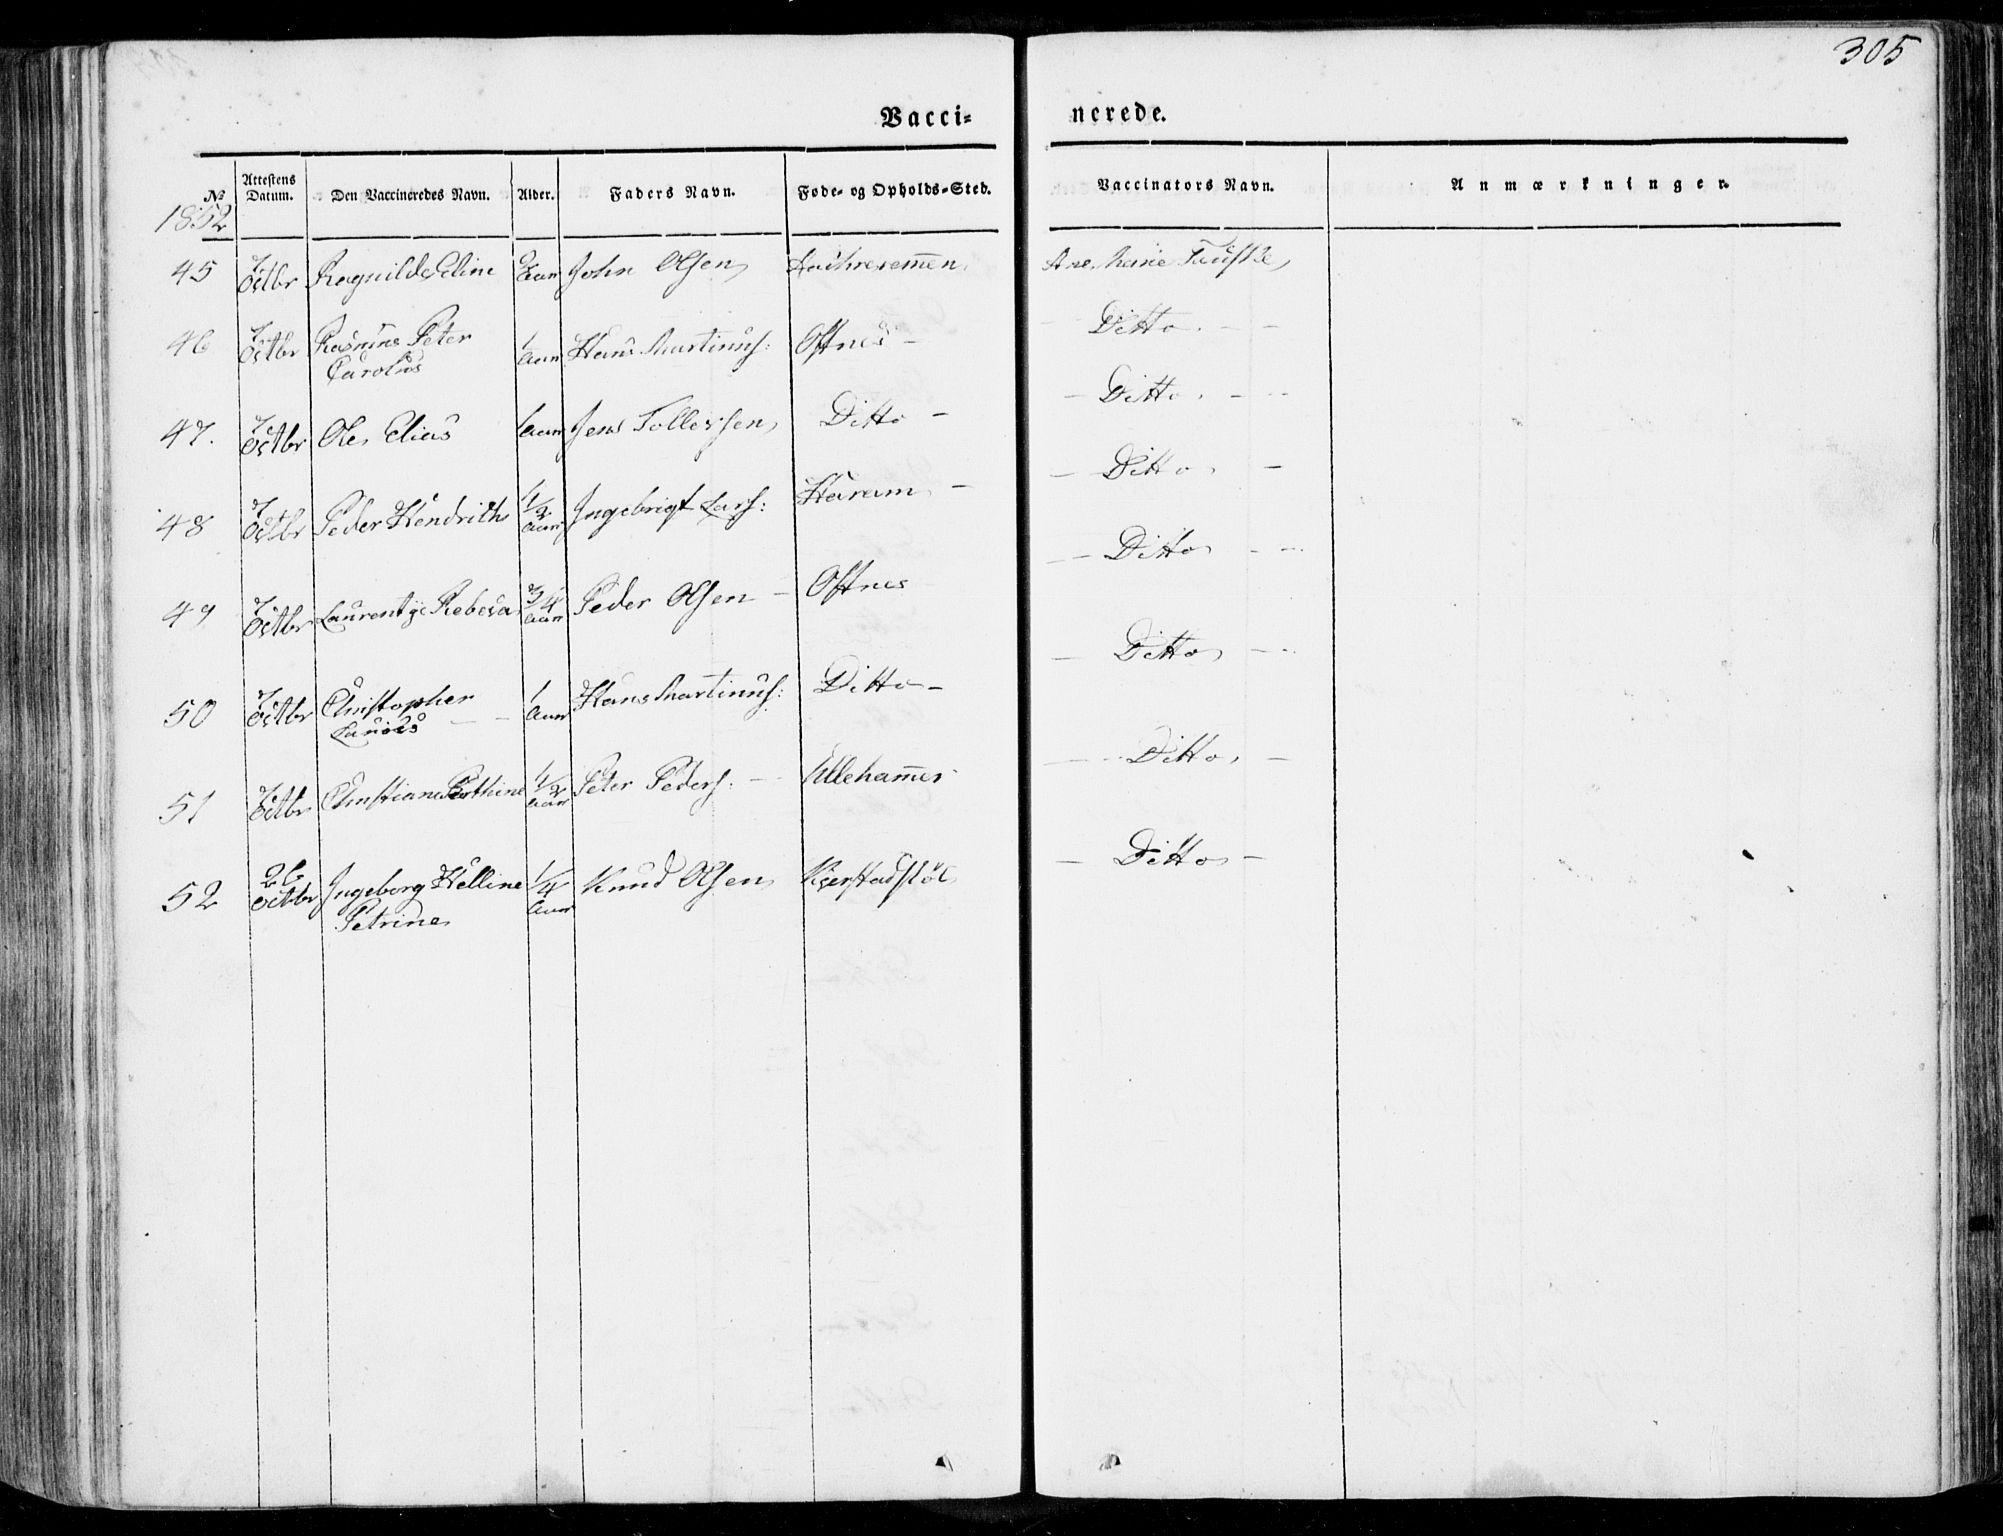 305
Vacci= nerede.
No Attestens Datum. Den Vaccineredes Navn. Alder. Faders Navn. Føde- og Opholds-Sted. Vaccinators Navn. Anmærkninger.
1852
45 7 Octbr Ragnilde Eline 2 Aar John Olsen Ane Marie
46 7 Octbr Rasmus Peter 1 Aar Hans Martinus: Oftnes - Ditto - -
Carolus
47. 7 Octbr Ole Elias 1 Aar Jens Tollevsen Ditto - - Ditto - -
48 7 Octbr Peder Hendrik 1/2 Aar Ingebrigt Lars: Haram - - Ditto -
49 7 Octbr Laurentze Rebeca 3/4 Aar Peder Olsen - Oftnes - Ditto - -
50 7 Octbr Christopher 1 Aar Hans Martinus: Ditto - - Ditto - -
51 7 Octbr Christiane 1/2 Aar Peter Peders. - Ullehammer - Ditto -
52 26 Octbr Ingeborg Helline 1/4 Aar Knud Olsen Kjerstadstöl - Ditto -
Petrine